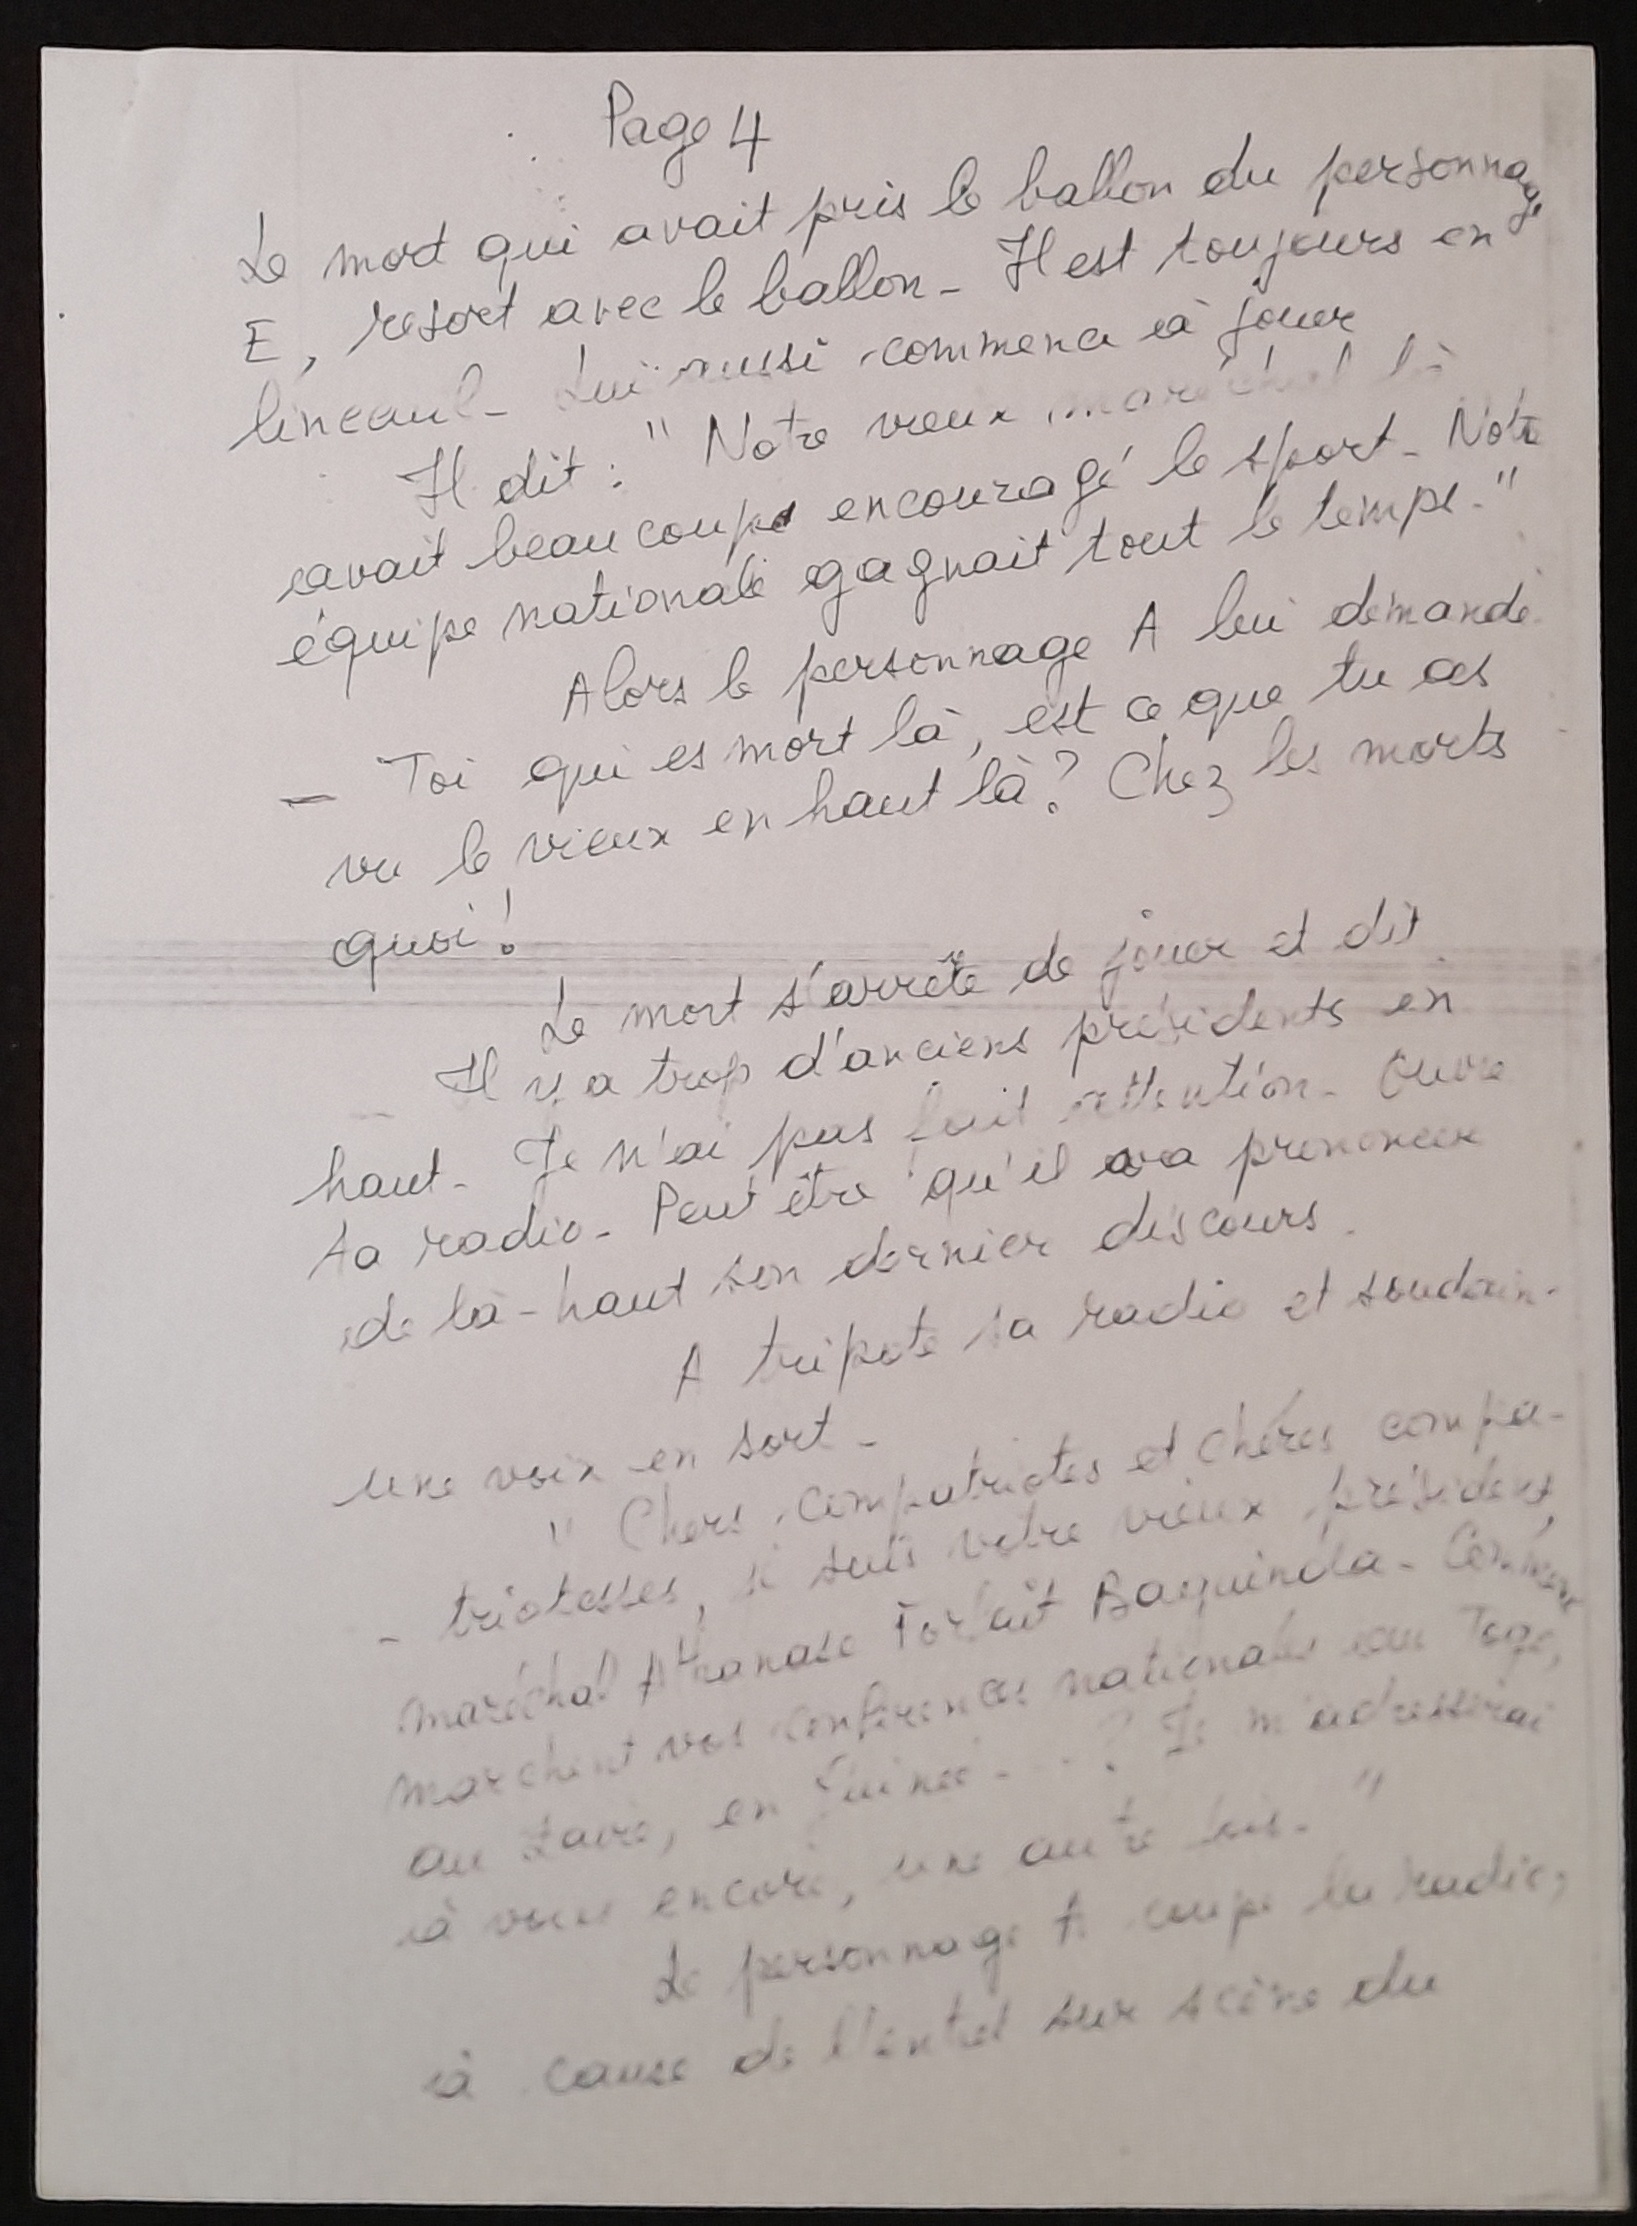 Page 4
Le mort qui avait pris le ballon du personnage
E, resort avec le ballon - Il est toujours en
linceul - Lui aussi commence à jouer
Il dit : " Notre vieux maréchal là
avait beaucoup encouragé le sport - Notre
équipe nationale gagnait tout le temps. "
Alors le personnage A lui demande
- Toi qui es mort là, est ce que tu as
vu le vieux en haut là ? Chez les morts
quoi !
Le mort s'arrête de jouer et dit
- Il y a trop d'anciens présidents en
haut - Je n'ai pas fait attention - Ouvre
ta radio - Peut être qu'il va prononcer
de là-haut son dernier discours.
A tripote sa radio et soudain
une voix en sort -
" Chers compatriotes et chères compa-
- triotesses, je suis votre vieux président,
maréchal Athanase Forfait Baguinda - Comment
marchent vos conférences nationales au Togo,
au Zaïre, en Guinée - - - ? Je m'adresserai
à vous encore, une autre fois. "
Le personnage A coupe la radio,
à cause de l'entré sur scène du